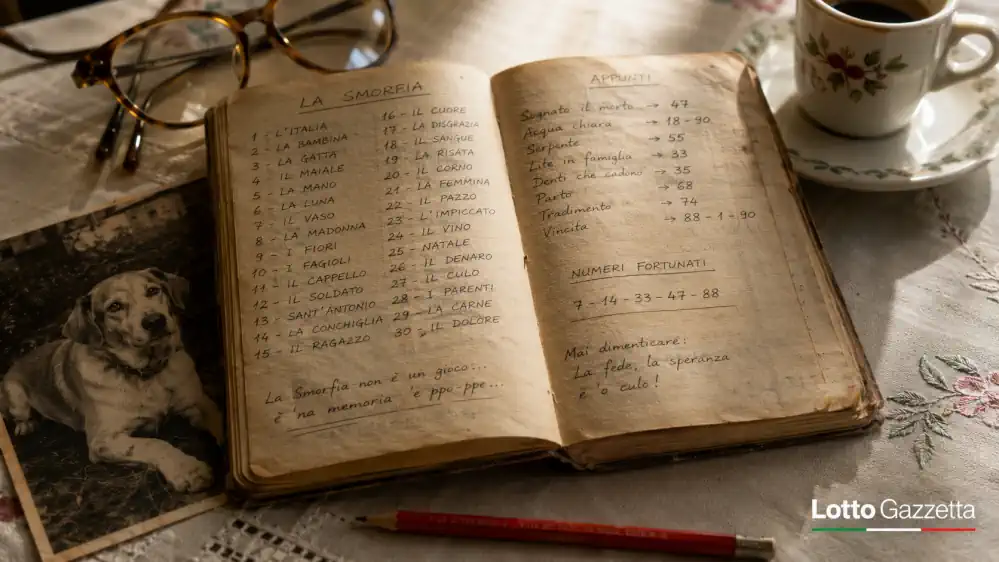 LA SMORFIA
1 - L'ITALIA
2 - LA BAMBINA
3 - LA GATTA
4 - IL MAIALE
5 - LA MANO
6 - LA LUNA
7 - IL VASO
8 - LA MADONNA
9 - I FIORI
10 - I FAGIOLI
11 - IL CAPPELLO
12 - IL SOLDATO
13 - SANT'ANTONIO
14 - LA CONCHIGLIA
15 - IL RAGAZZO
16 - IL CUORE
17 - LA DISGRAZIA
18 - IL SANGUE
19 - LA RISATA
20 - IL CORNO
21 - LA FEMMINA
22 - IL PAZZO
23 - L'IMPICCATO
24 - IL VINO
25 - NATALE
26 - IL DENARO
27 - IL CULO
28 - I PARENTI
29 - LA CARNE
30 - IL DOLORE
La Smorfia non è un gioco...
è 'na memoria 'e ppo-ppe...
APPUNTI
Sognato il morto → 47
Acqua chiara → 18-90
Serpente → 55
Lite in famiglia → 33
Denti che cadono → 35
Parto → 68
Tradimento → 74
Vincita → 88-1-90
NUMERI FORTUNATI
7-14-33-47-88
Mai dimenticare:
La fede, la speranza
e 'o culo!
Lotto Gazzetta